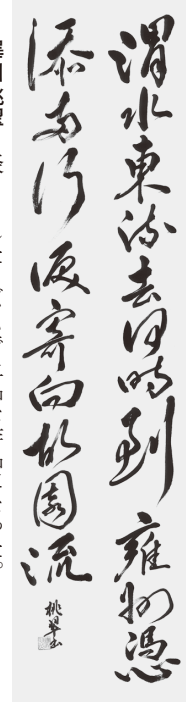 渭水東流去何時到雍州憑
添両行涙寄向故園流
桃翠書